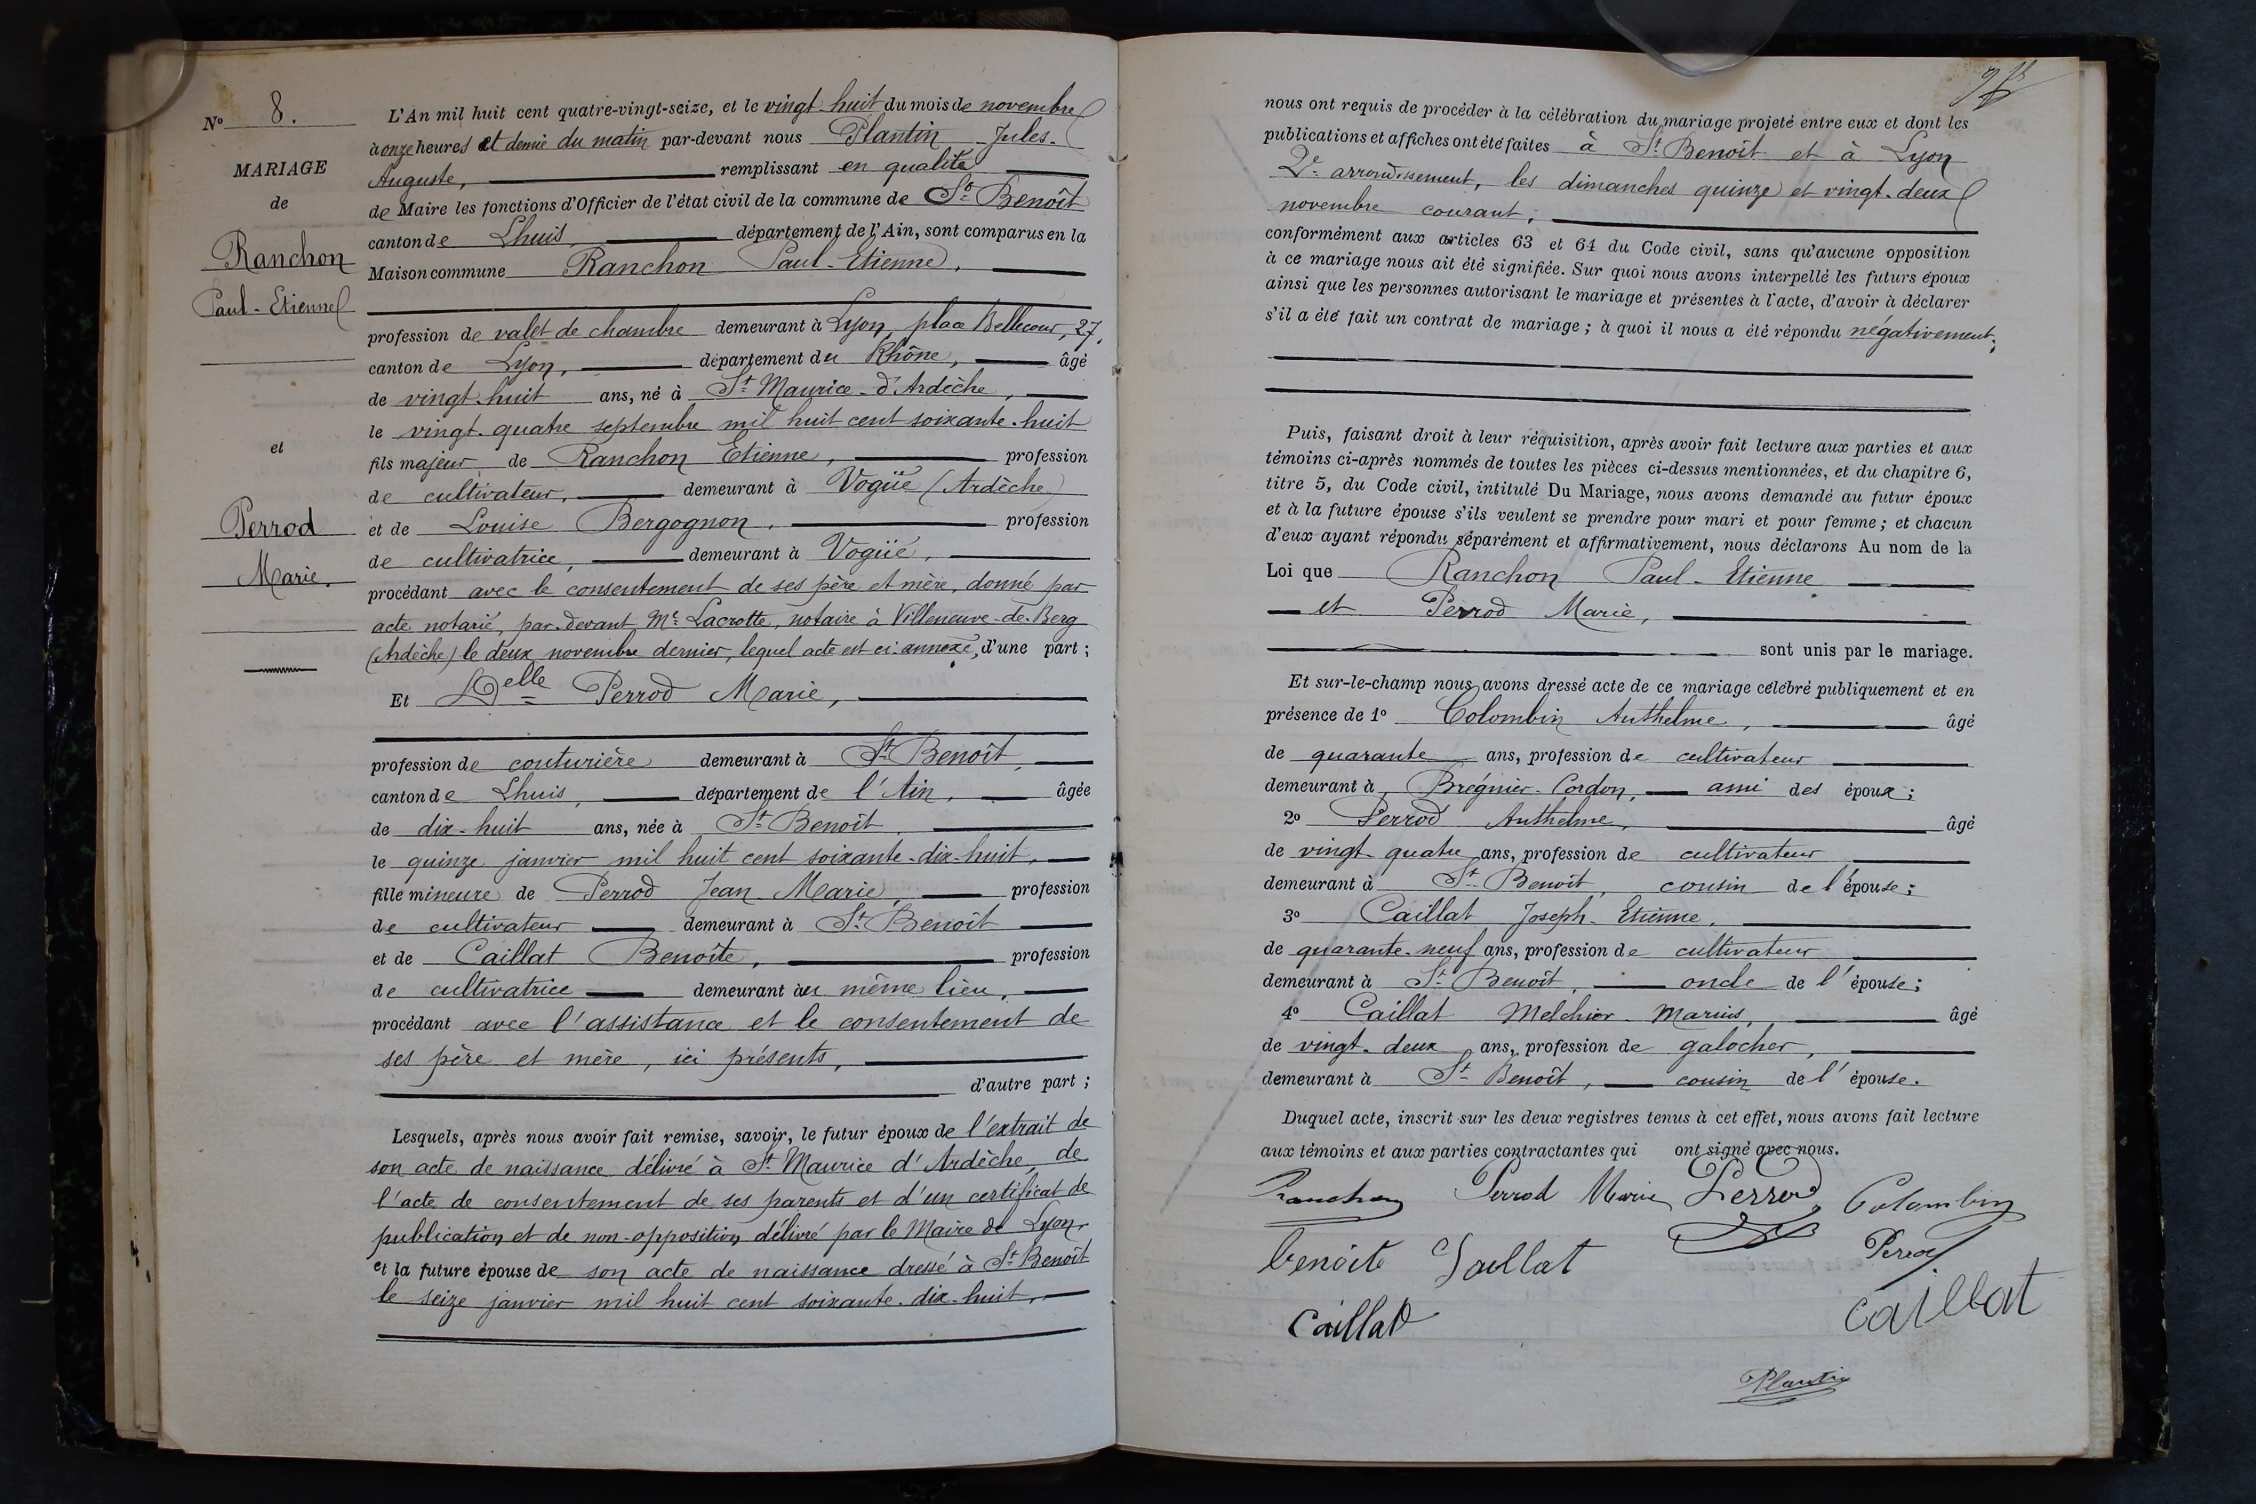 N° 8.
MARIAGE
de
Ranchon
Paul-Etienne
et
Perrod
Marie.
L'An mil huit cent quatre-vingt-seize, et le vingt-huit du mois de novembre
à onze heures et demie du matin par-devant nous Plantin Jules-
Auguste, remplissant en qualité
de Maire les fonctions d'Officier de l'état civil de la commune de St Benoît
canton de Lhuis, département de l'Ain, sont comparus en la
Maison commune Ranchon Paul-Etienne,
profession de valet de chambre demeurant à Lyon, place Bellecour, 27,
canton de Lyon, département du Rhône, âgé
de vingt-huit ans, né à St Maurice-d'Ardèche,
le vingt-quatre septembre mil huit cent soixante-huit
fils majeur de Ranchon Etienne, profession
de cultivateur, demeurant à Vogüé (Ardèche)
et de Louise Bergognon, profession
de cultivatrice, demeurant à Vogüé,
procédant avec le consentement de ses père et mère, donné par
acte notarié, par-devant Me Lacrotte, notaire à Villeneuve-de-Berg
(Ardèche) le deux novembre dernier, lequel acte est ci-annexé, d'une part ;
Et Delle Perrod Marie,
profession de couturière demeurant à St Benoît,
canton de Lhuis, département de l'Ain, âgée
de dix-huit ans, née à St Benoît,
le quinze janvier mil huit cent soixante-dix-huit,
fille mineure de Perrod Jean-Marie, profession
de cultivateur demeurant à St Benoît
et de Caillat Benoîte, profession
de cultivatrice demeurant au même lieu,
procédant avec l'assistance et le consentement de
ses père et mère, ici présents,
d'autre part ;
Lesquels, après nous avoir fait remise, savoir, le futur époux de l'extrait de
son acte de naissance délivré à St Maurice d'Ardèche, de
l'acte de consentement de ses parents et d'un certificat de
publication et de non-opposition délivré par le Maire de Lyon,
et la future épouse de son acte de naissance dressé à St Benoît
le seize janvier mil huit cent soixante-dix-huit,
nous ont requis de procéder à la célébration du mariage projeté entre eux et dont les
publications et affiches ont été faites à St Benoît et à Lyon
2e arrondissement, les dimanches quinze et vingt-deux
novembre courant,
conformément aux articles 63 et 64 du Code civil, sans qu'aucune opposition
à ce mariage nous ait été signifiée. Sur quoi nous avons interpellé les futurs époux
ainsi que les personnes autorisant le mariage et présentes à l'acte, d'avoir à déclarer
s'il a été fait un contrat de mariage ; à quoi il nous a été répondu négativement;
Puis, faisant droit à leur réquisition, après avoir fait lecture aux parties et aux
témoins ci-après nommés de toutes les pièces ci-dessus mentionnées, et du chapitre 6,
titre 5, du Code civil, intitulé Du Mariage, nous avons demandé au futur époux
et à la future épouse s'ils veulent se prendre pour mari et pour femme ; et chacun
d'eux ayant répondu séparément et affirmativement, nous déclarons Au nom de la
Loi que Ranchon Paul-Etienne
et Perrod Marie,
sont unis par le mariage.
Et sur-le-champ nous avons dressé acte de ce mariage célébré publiquement et en
présence de 1° Colombin Anthelme, âgé
de quarante ans, profession de cultivateur
demeurant à Brégnier-Cordon, ami des époux ;
2° Perrod Anthelme, âgé
de vingt-quatre ans, profession de cultivateur
demeurant à St Benoît, cousin de l'épouse ;
3° Caillat Joseph-Etienne,
de quarante-neuf ans, profession de cultivateur
demeurant à St Benoît, oncle de l'épouse ;
4° Caillat Melchior-Marius, âgé
de vingt-deux ans, profession de galocher,
demeurant à St Benoît, cousin de l'épouse.
Duquel acte, inscrit sur les deux registres tenus à cet effet, nous avons fait lecture
aux témoins et aux parties contractantes qui ont signé avec nous.
Ranchon Perrod Marie Perrod Colombin
benoite Caillat Perrod
Caillat caillat
Plantin